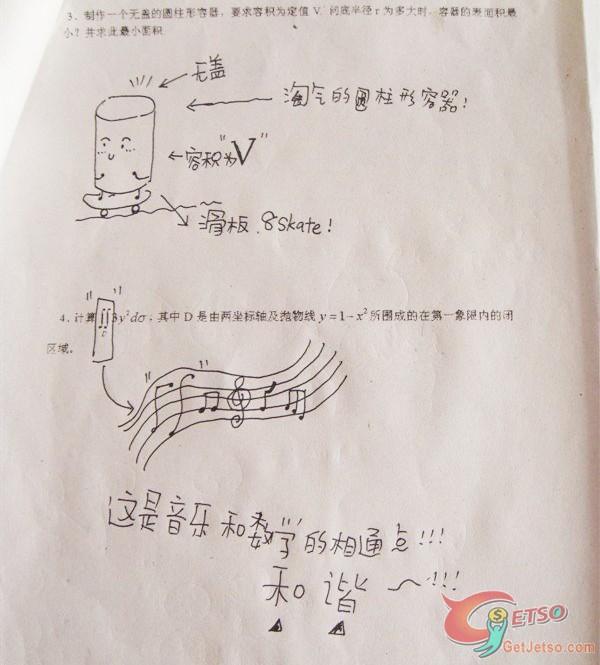 3、制作一个无盖的圆柱形容器，要求容积为定值 V. 问底半径 r 为多大时，容器的表面积最
小？并求此最小面积.
无盖
淘气的圆柱形容器！
容积为"V"
滑板.Skate！
4、计算∬3y²dσ，其中 D 是由两坐标轴及抛物线 y=1-x² 所围成的在第一象限内的闭
D
区域。
这是音乐和数学的相通点！！！
和谐～！！！
GETSO
GetJetso.com